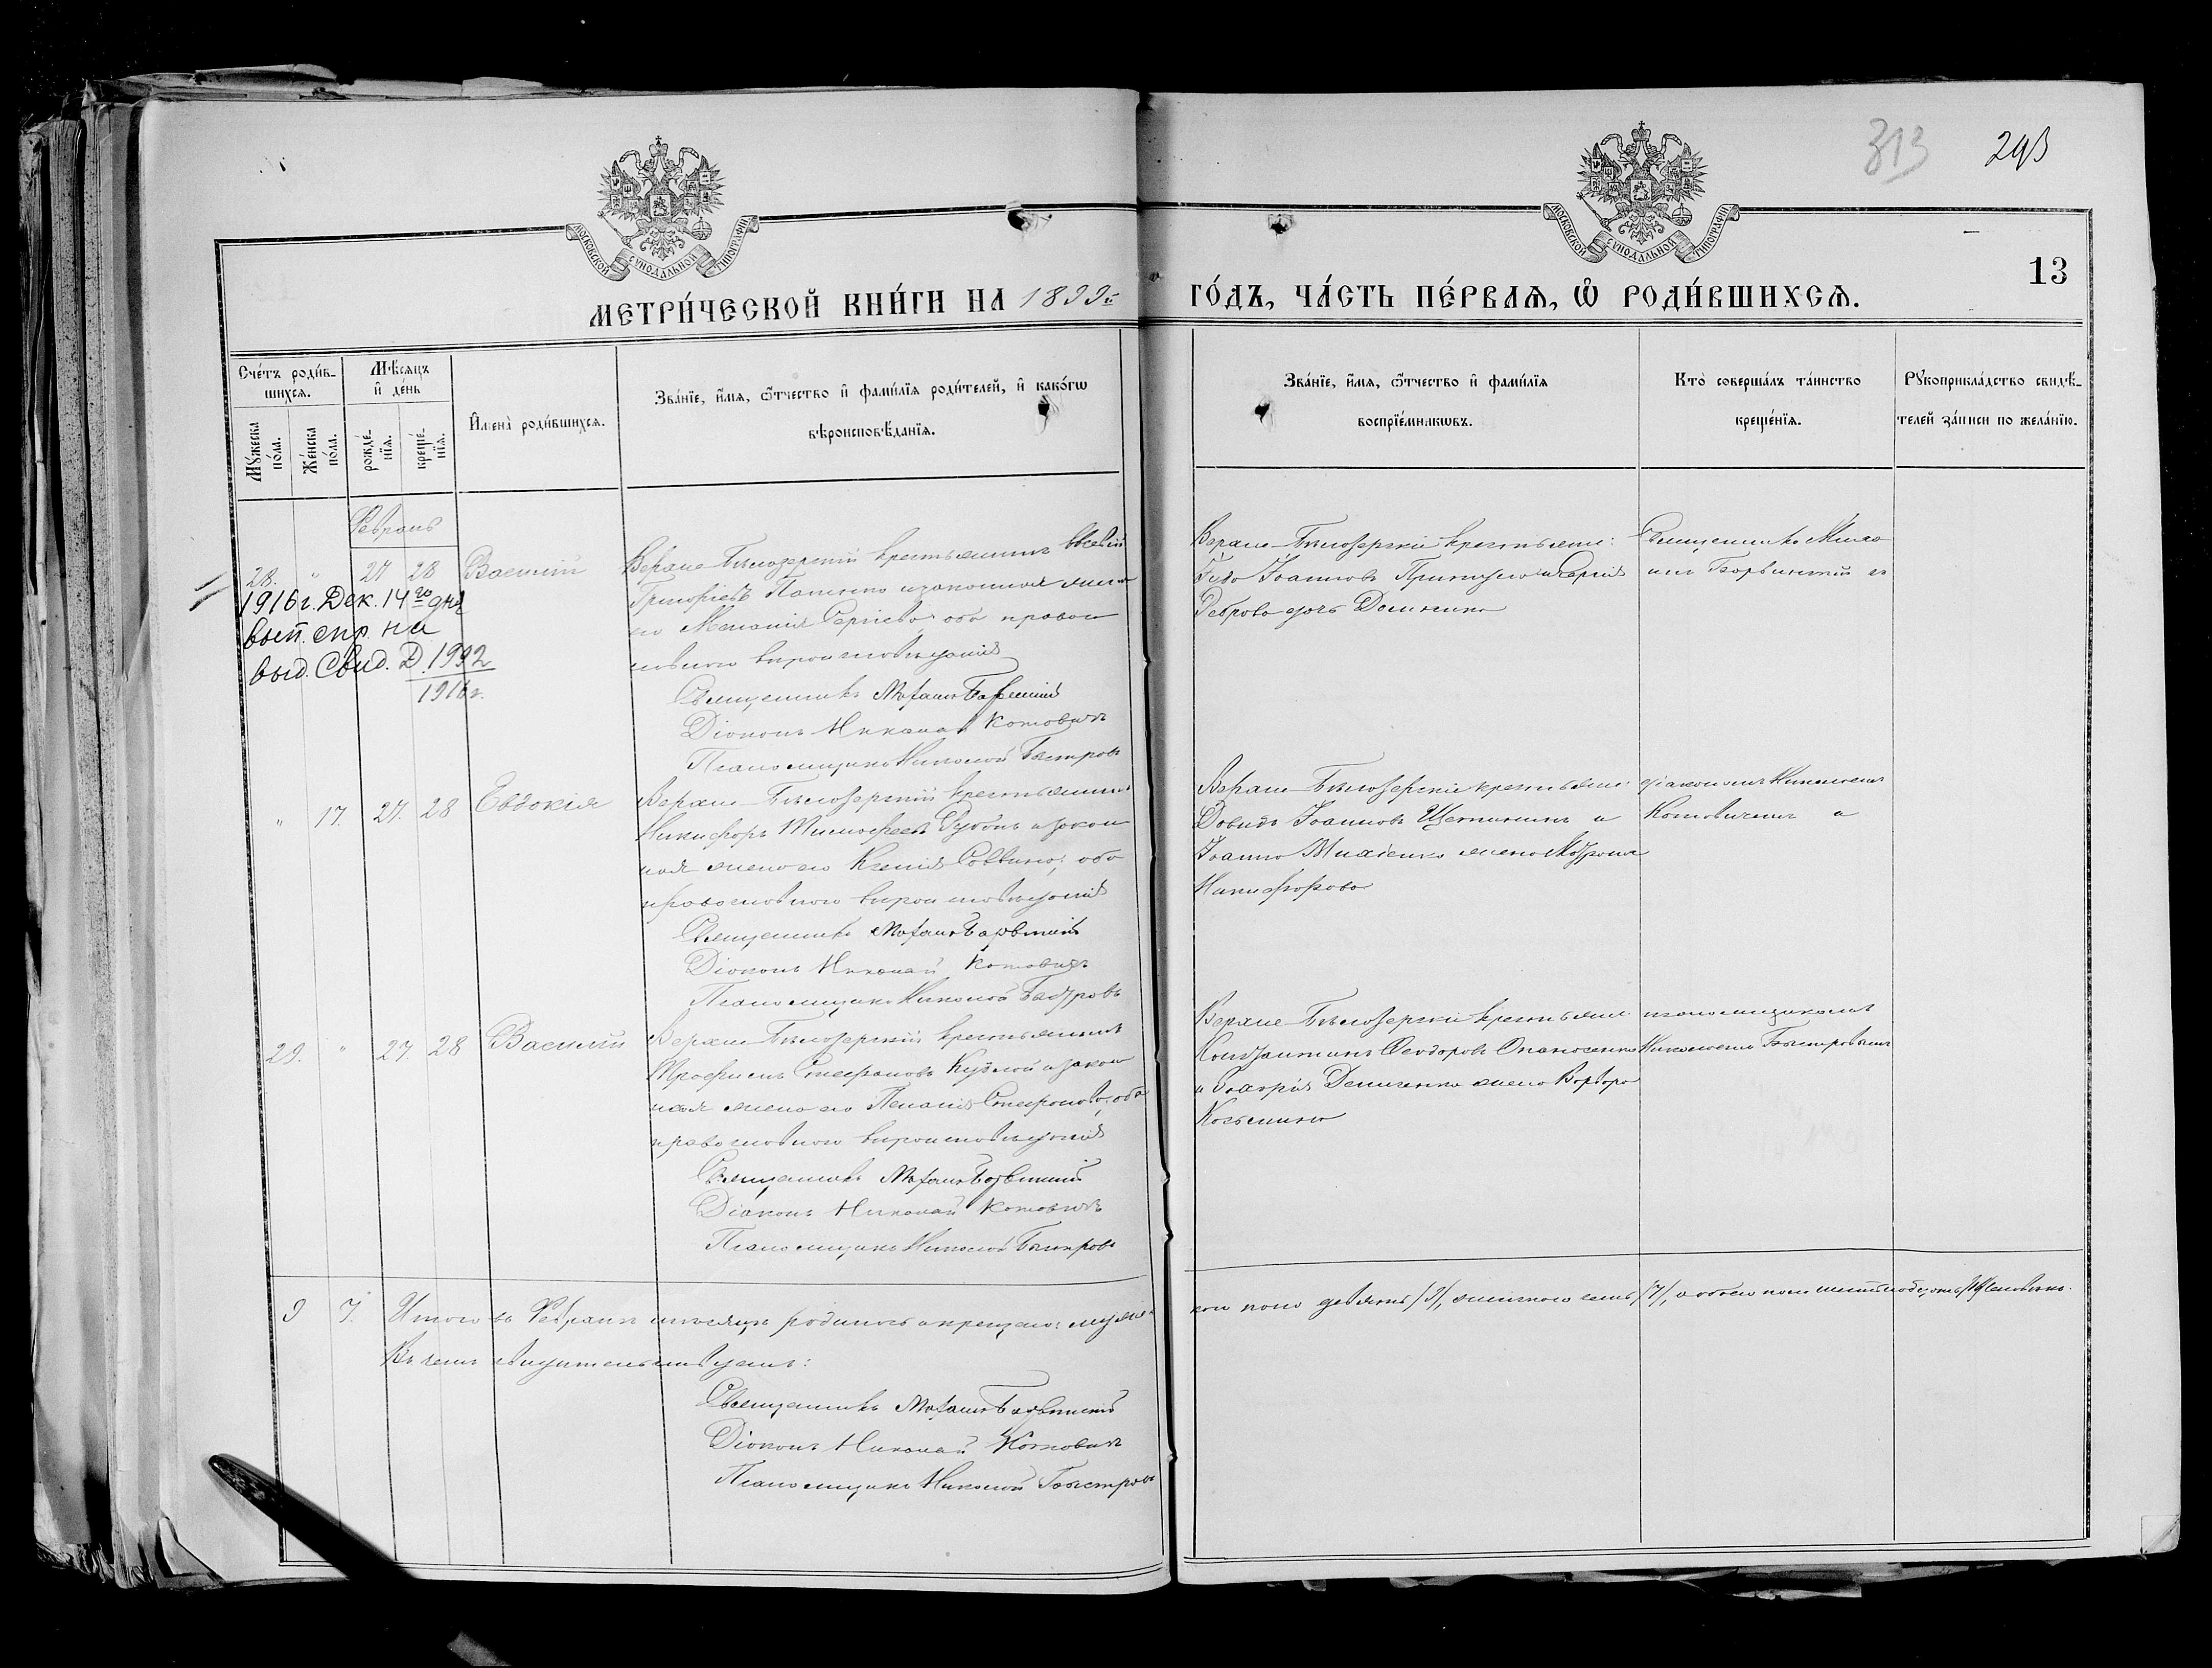 313 293
МОСКОВСКОЙ СѴНОДАЛЬНОЙ ТИПОГРАФІИ
МОСКОВСКОЙ СѴНОДАЛЬНОЙ ТИПОГРАФІИ
13
МЕТРИ́ЧЕСКОЙ КНИ́ГИ НА 1899й ГО́ДЪ, ЧА́СТЬ ПЕ́РВАѦ, Ѡ҆ РОДИ́ВШИХСѦ.
Сче́тъ роди́в-
шихсѧ.
Мꙋ́жеска по́ла.
Же́нска по́ла.
Мѣ́сѧцъ
и҆ де́нь
рожде́-нїѧ.
креще́-нїѧ.
И҆мена̀ роди́вшихсѧ.
Зва́нїе, и҆́мѧ, ѻ҆́тчество и҆ фами́лїѧ роди́телей, и҆ како́гѡ
вѣроисповѣ́данїѧ.
Зва́нїе, и҆́мѧ, ѻ҆́тчество и҆ фами́лїѧ
воспрїе́мникѡвъ.
Кто̀ соверша́лъ та́инство
креще́нїѧ.
Рꙋкоприкла́дство свидѣ́-
телей за́писи по жела́нїю.
Февраль
28. " 27 28 Василій
Верхне-Бѣлозерскій крестьянинъ
Григоріевъ и законная жена
его Меланія Сергіева оба право
славного вѣроисповѣданія
Священникъ Михаилъ
Діаконъ Николай Котовичъ
Псаломщикъ Николай Быстровъ
Верхне-Бѣлозерскіе крестьяне:
Іоанновъ и Сергія
Реброва дочь Домникія
Священникъ Миха
илъ съ
1916 г. Дек. 14го дня
вып. спр. на
выд. Свид. Д. 1992
1916 г.
" 17. 27. 28 Евдокія
Верхне-Бѣлозерскій крестьянинъ
Никифоръ Тимофеевъ Губа и закон
ная жена его Ксенія Саввина, оба
православного вѣроисповѣданія
Священникъ Михаилъ
Діаконъ Николай Котовичъ
Псаломщикъ Николай Быстровъ
Верхне-Бѣлозерскіе крестьяне:
Давидъ Іоанновъ Щетининъ и
Іоанна Михіенка жена Матрона
Никифорова
діакономъ Николаемъ
Котовичемъ и
29. " 27. 28 Василій
Верхне-Бѣлозерскій крестьянинъ
Трофимъ Стефановъ и закон
ная жена его Пелагія Стефанова, оба
православного вѣроисповѣданія
Священникъ Михаилъ
Діаконъ Николай Котовичъ
Псаломщикъ Николай Быстровъ
Верхне-Бѣлозерскіе крестьяне:
Константинъ Феодоровъ Опанасенко
и Захарія Демиченка жена Варвара
Козьмина
псаломщикомъ
Николаемъ Быстровымъ
9 7. Итого въ Февралѣ мѣсяцѣ родилось и крещено: мужес
кого пола девять /9/, женского семь /7/, а обоего пола шестнадцать /16/ человѣкъ.
Въ чемъ свидѣтельствуемъ:
Священникъ Михаилъ
Діаконъ Николай Котовичъ
Псаломщикъ Николай Быстровъ